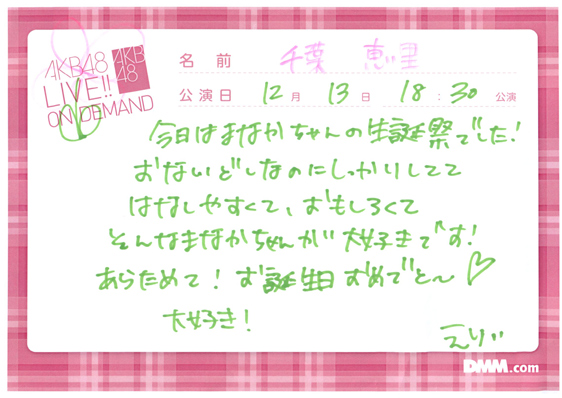 AKB48
LIVE!!
ON DEMAND
AKB
48
名前 千葉 恵里
公演日 12月 13日 18:30 公演
今日はまなかちゃんの生誕祭でした!
おないどしなのにしっかりしてて
はなしやすくて、おもしろくて
そんなまなかちゃんが大好きです!
あらためて!お誕生日おめでと〜♡
大好き!
えりい
DMM.com